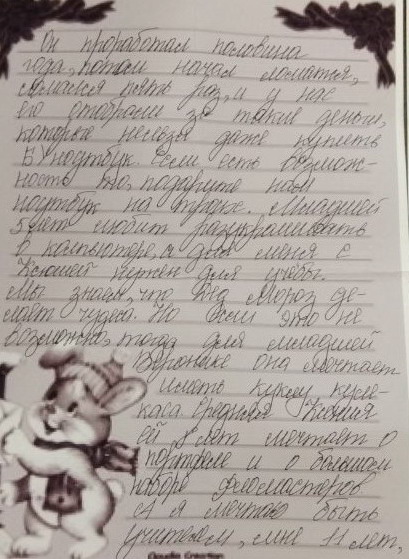 Он проработал половина
года, потом начал ломатся,
ломался пять раз, и у нас
его отобрали за такие деньги,
которые нельзя даже купить
БУ ноутбук. Если есть возмож-
ность то, подарите нам
ноутбук на троих. Младшей
5 лет любит разукрашивать
в компьютере, а для меня с
Ксюшей нужен для учёбы.
Мы знаем, что Дед Мороз де-
лает чудеса. Но если это не
возможно, тогда для младшей
Веронике она мечтает
иметь куклу
Средняя Ксения
ей 8 лет мечтает о
портфеле и о большом
наборе фломастеров
А я мечтаю быть
учителем, мне 11 лет,